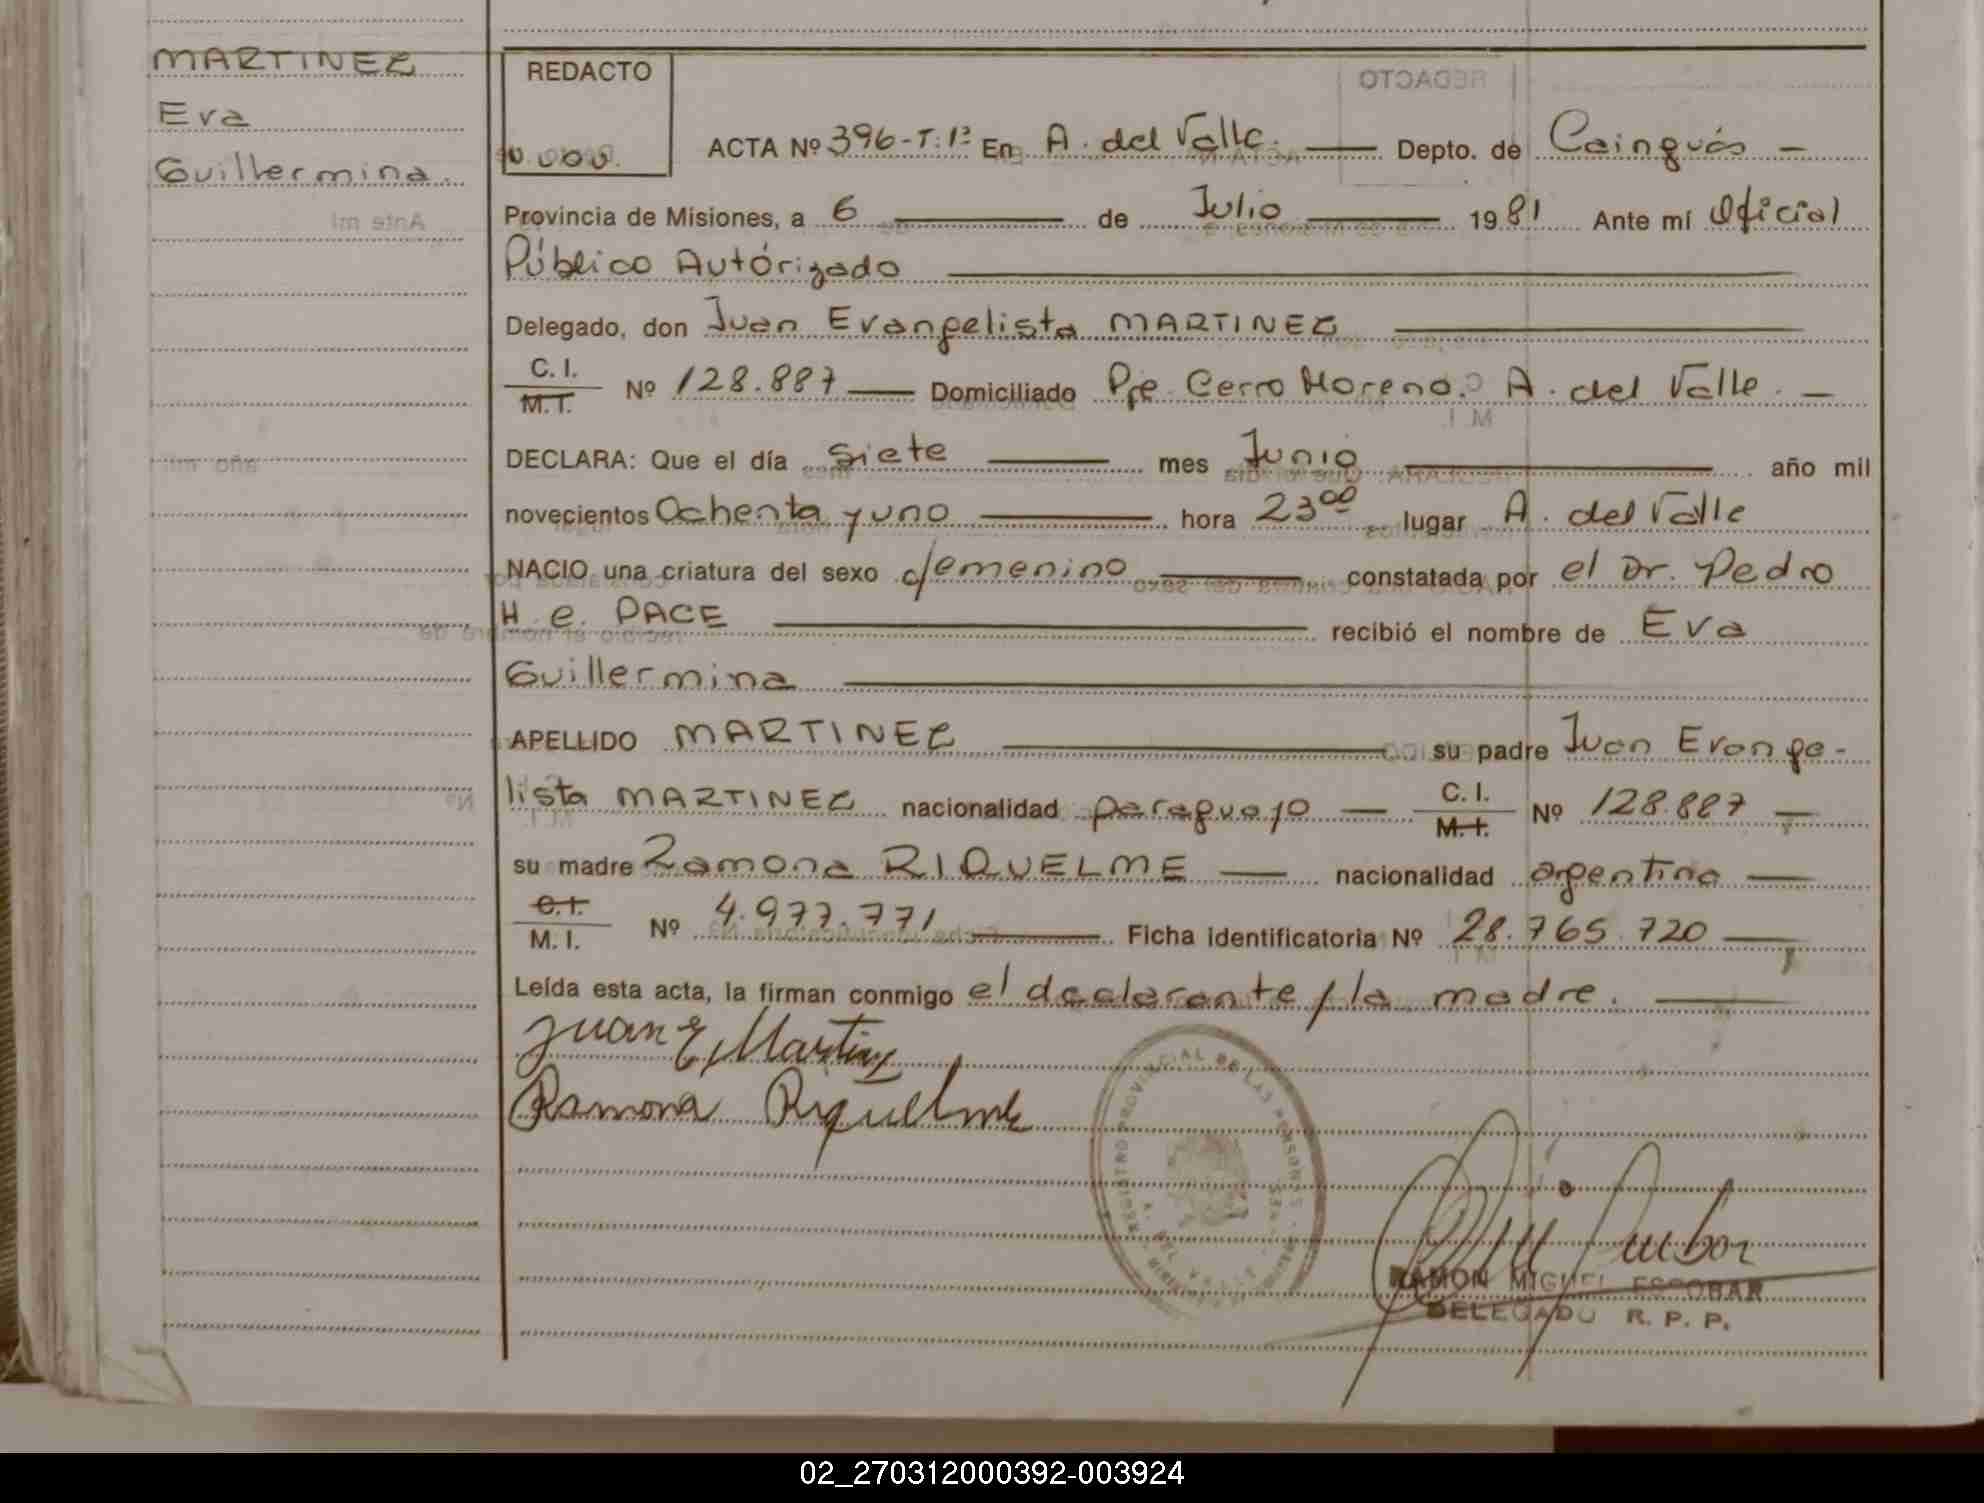 MARTINEZ
Eva
Guillermina.
REDACTO
ACTA Nº 396-T:1º En A. del Valle. Depto. de Cainguás –
Provincia de Misiones, a 6 de Julio 1981 Ante mí Oficial
Público Autórizado
Delegado, don Juan Evangelista MARTINEZ
C. I.
M. I. Nº 128.887 Domiciliado Pje Cerro Moreno. A. del Valle. –
DECLARA: Que el día siete mes Junio año mil
novecientos Ochenta y uno hora 23⁰⁰ lugar A. del Valle
NACIO una criatura del sexo femenino constatada por el Dr. Pedro
H. e. PACE recibió el nombre de Eva
Guillermina
APELLIDO MARTINEZ su padre Juan Evange-
lista MARTINEZ nacionalidad paraguayo – C. I.
M. I. Nº 128.887 –
su madre Ramona RIQUELME – nacionalidad argentina –
C. I.
M. I. Nº 4.977.771 Ficha identificatoria Nº 28.765.720 –
Leída esta acta, la firman conmigo el declarante y la madre.
Juan E. Martinez
Ramona Riquelme
REGISTRO PROVINCIAL DE LAS PERSONAS
A. DEL VALLE
RAMON MIGUEL ESCOBAR
DELEGADO R. P. P.
02_270312000392-003924